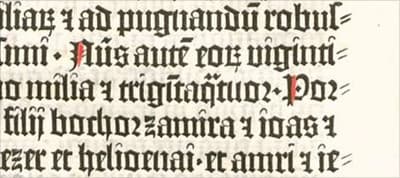 iliaꝝ ⁊ ad pugnandū robus⸗
simi · Nūs autē eoꝝ viginti⸗
o milia ⁊ trigītaq̄tuor · Por⸗
filij bochor zamira ⁊ ioas ⁊
ezer et helioenai · et amri ⁊ ie⸗